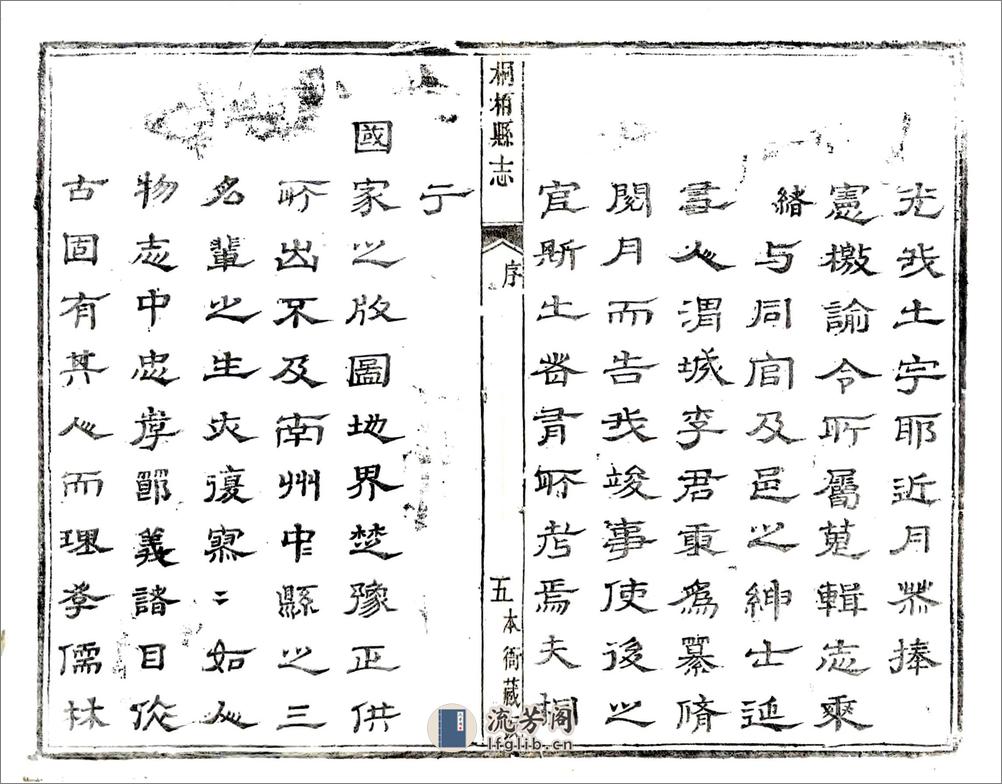 光我土宇耶近月恭捧
憲檄諭令所屬蒐輯志乘
緒与同官及邑之紳士延
人渭城李君重為纂脩
閱月而告我竣事使後之
宦斯土者有所考焉夫桐
桐柏縣志
序
五
本衙藏
于
國家之版圖地界楚豫正供
所出不及南州中縣之三
名輩之生亦復寥〻如人
物志中忠孝節義諸目從
古固有其人而理學儒林
流芳阁
lfglib.cn